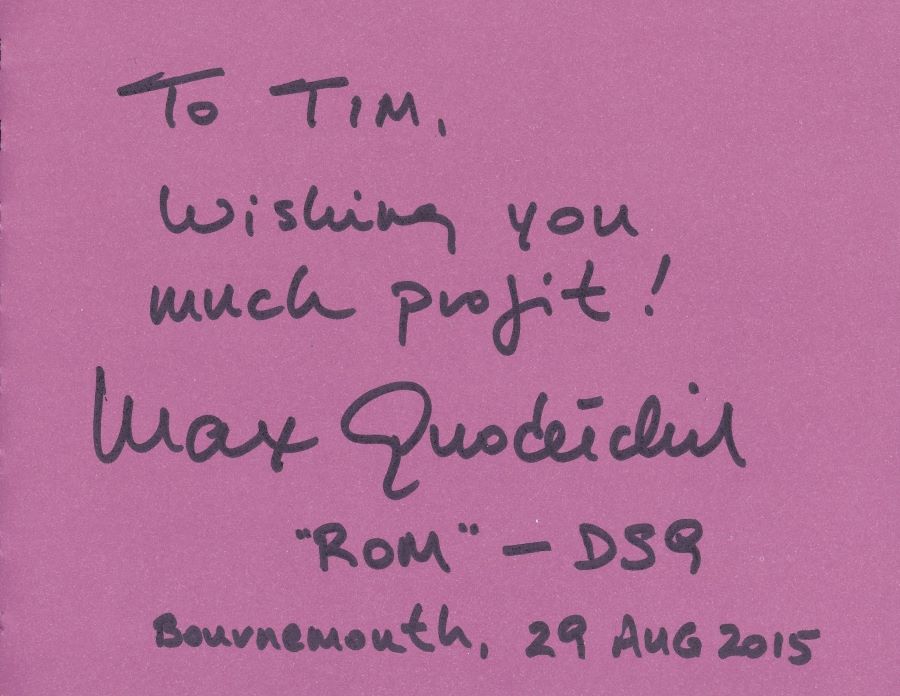 To TIM,
Wishing you
much profit!
Max Grodénchik
"ROM" — DS9
Bournemouth, 29 AUG 2015